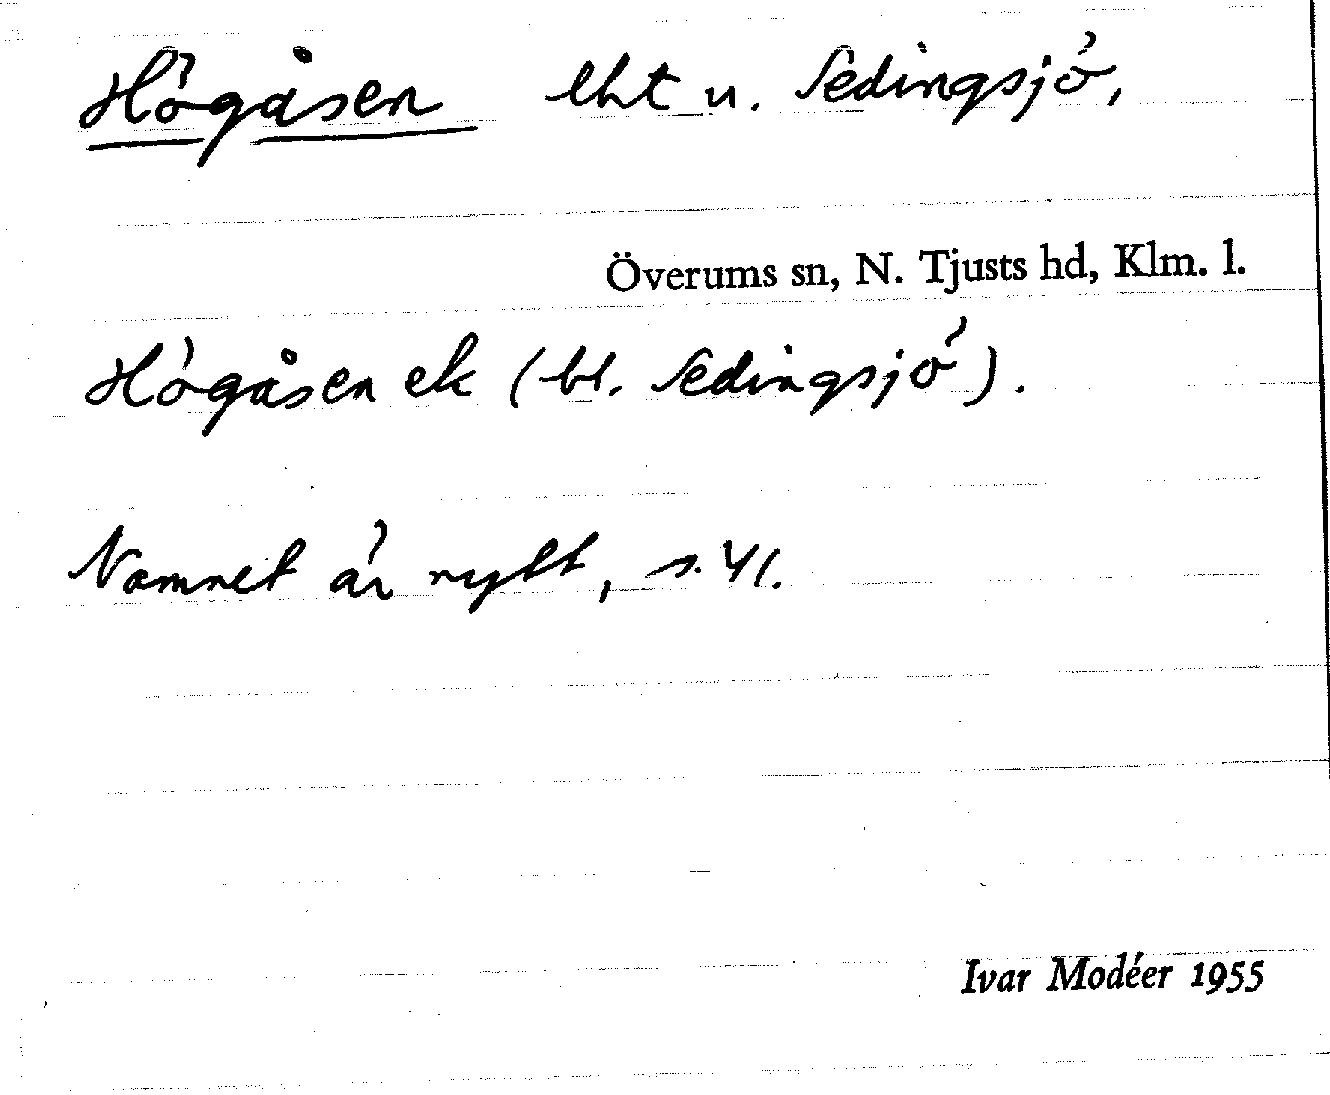 Högåsen lht u. Sedingsjö,
Överums sn, N. Tjusts hd, Klm. l.
Högåsen ek (bl. Sedingsjö).
Namnet är nytt, s. 41.
Ivar Modéer 1955